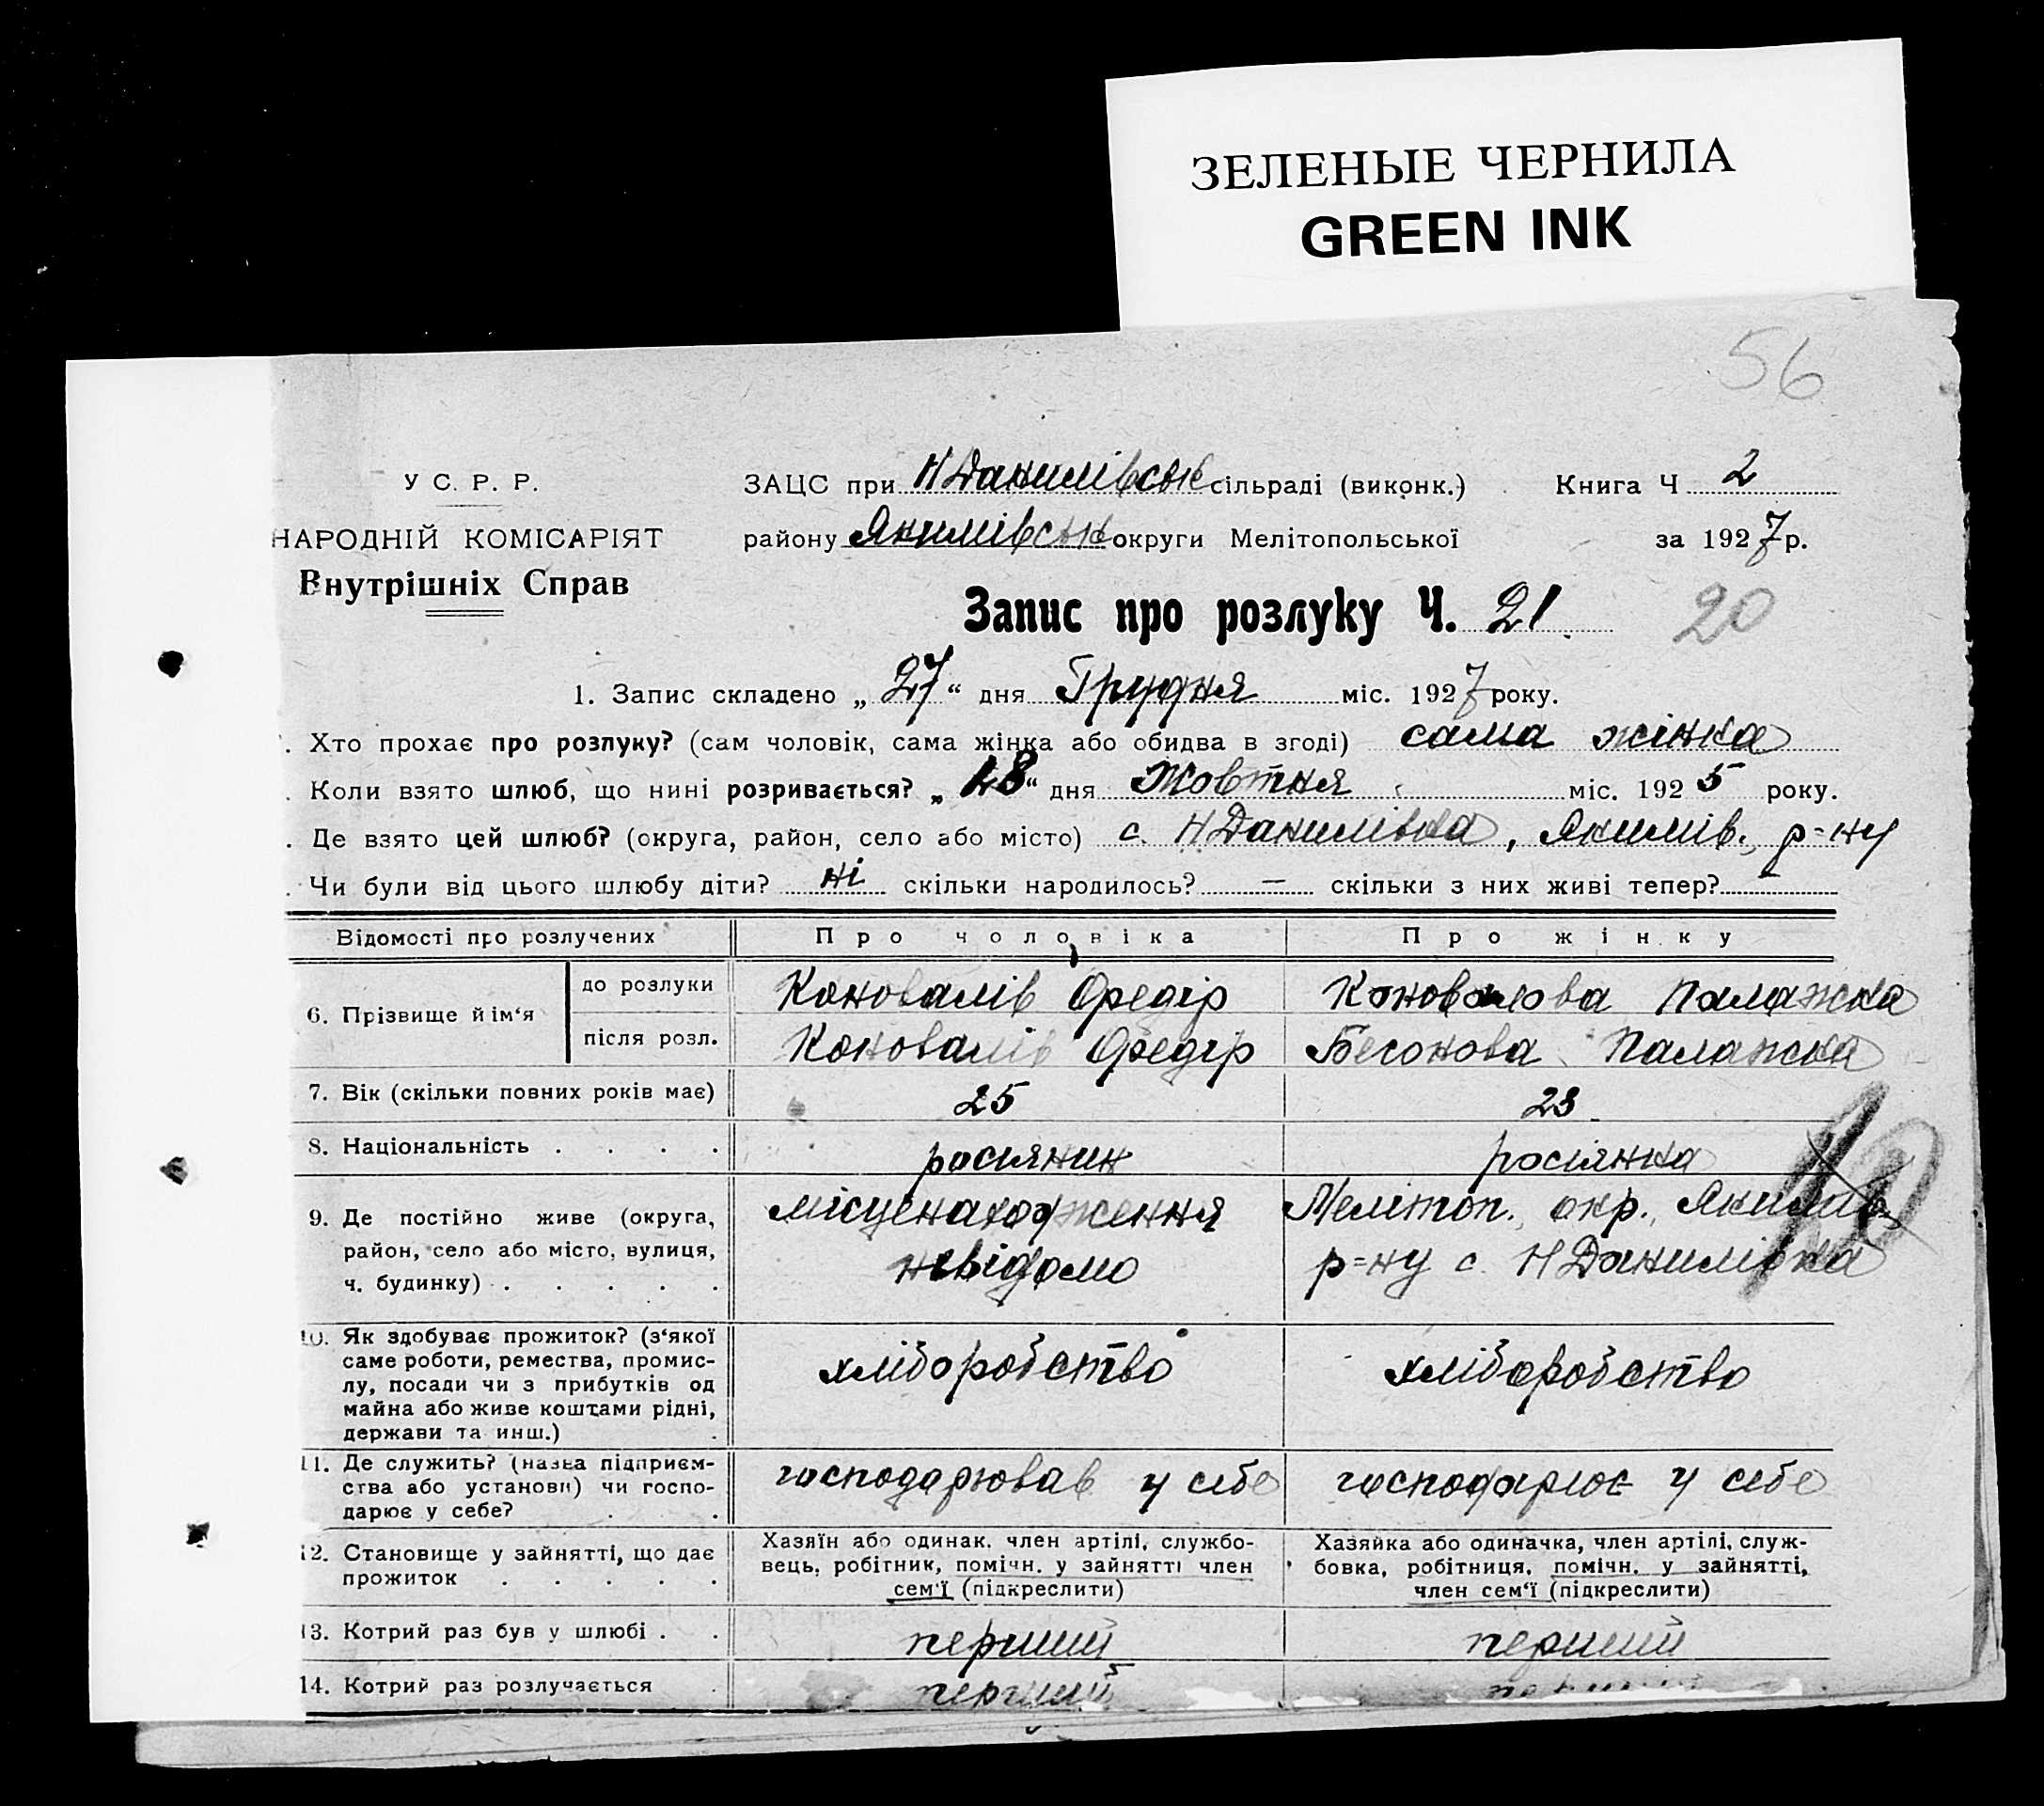 ЗЕЛЕНЫЕ ЧЕРНИЛА
GREEN INK
56
У С. Р. Р.
НАРОДНІЙ КОМІСАРІЯТ
Внутрішніх Справ
ЗАЦС при Н Данилівськ сільраді (виконк.) Книга Ч 2
району Якимівськ округи Мелітопольської за 1927 р.
Запис про розлуку Ч. 21 20
1. Запис складено „ 27 “ дня Грудня міс. 1927 року.
. Хто прохає про розлуку? (сам чоловік, сама жінка або обидва в згоді) сама жінка
. Коли взято шлюб, що нині розривається? „ 18 “ дня Жовтня міс. 1925 року.
. Де взято цей шлюб? (округа, район, село або місто) с. Н Данилівка, Якимів. р=ну
. Чи були від цього шлюбу діти? ні скільки народилось? — скільки з них живі тепер? —
Відомості про розлучених Про чоловіка Про жінку
6. Прізвище й ім‘я до розлуки Коновалів Федір Коновалова Палажка
після розл. Коновалів Федір Бесонова Палажка
7. Вік (скільки повних років має) 25 23
8. Національність . . . . росіянин росіянка
9. Де постійно живе (округа, район, село або місто, вулиця, ч. будинку) . . . . .
місценаходження
невідомо
Мелітоп. окр., Якимів.
р=ну с. Н Данилівка
10. Як здобуває прожиток? (з‘якої
саме роботи, ремества, промис-
лу, посади чи з прибутків од
майна або живе коштами рідні,
держави та инш.) .
хліборобство хліборобство
11. Де служить? (назва підприєм-
ства або установи) чи госпо-
дарює у себе? . .
господарював у себе господарює у себе
12. Становище у зайнятті, що дає
прожиток . . . . .
Хазяїн або одинак. член артілі, службо-
вець, робітник, помічн. у зайнятті член
сем‘ї (підкреслити)
Хазяйка або одиначка, член артілі, служ-
бовка, робітниця, помічн. у зайнятті,
член сем‘ї (підкреслити)
13. Котрий раз був у шлюбі . . перший перший
14. Котрий раз розлучається . перший перший